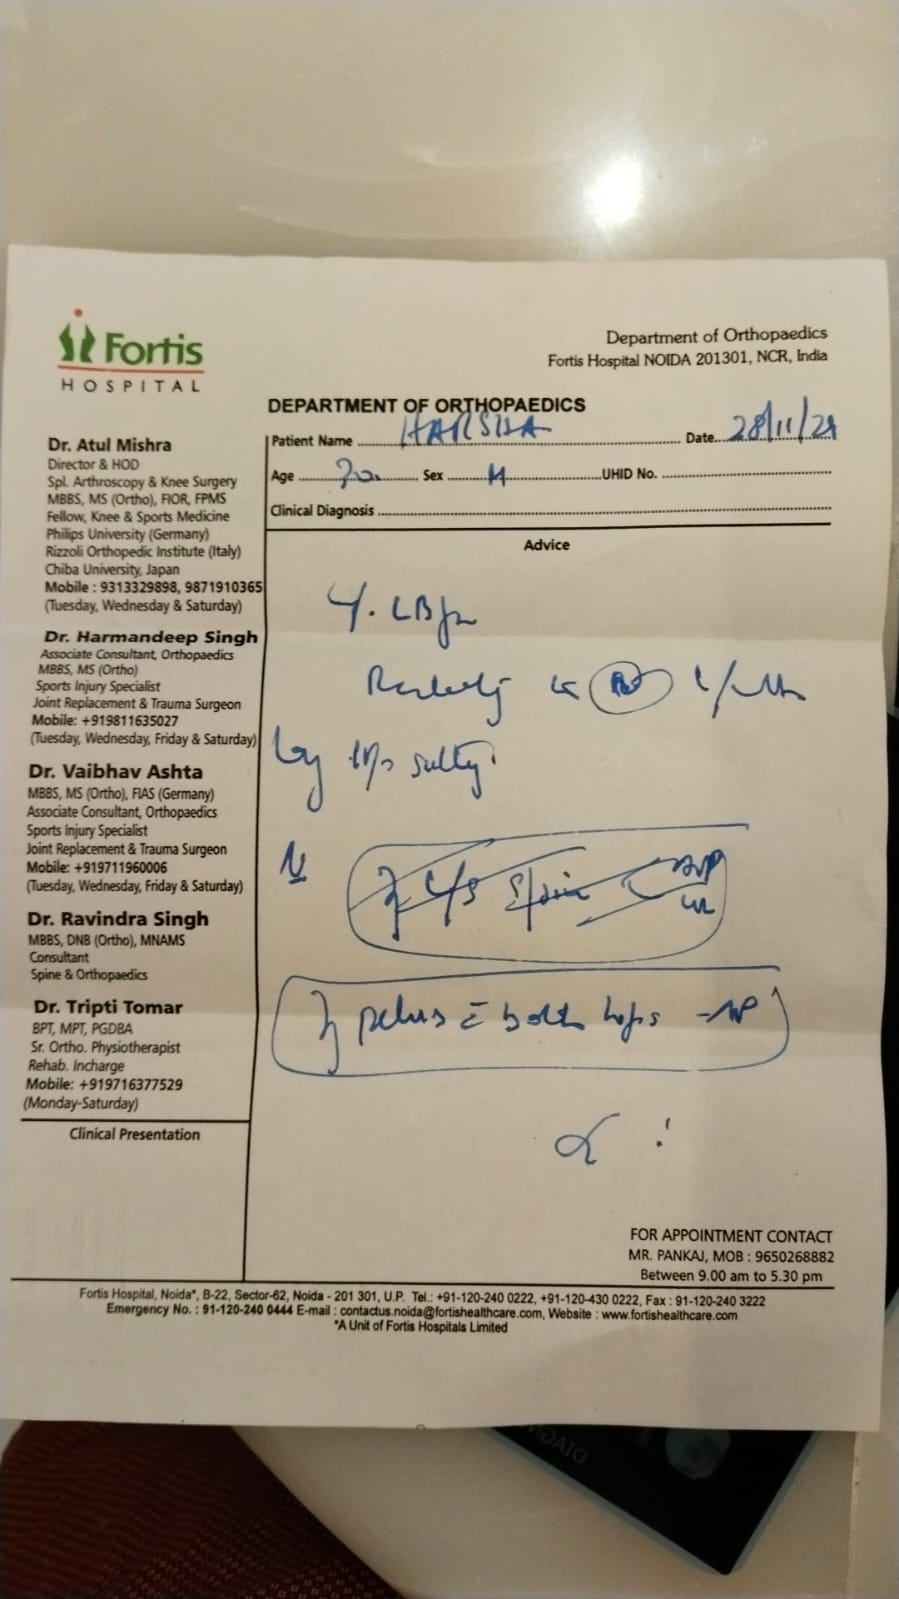 Fortis
HOSPITAL
Department of Orthopaedics
Fortis Hospital NOIDA 201301, NCR, India
DEPARTMENT OF ORTHOPAEDICS
Patient Name HARSHA Date 28/11/24
Age Sex M UHID No.
Clinical Diagnosis
Advice
Dr. Atul Mishra
Director & HOD
Spl. Arthroscopy & Knee Surgery
MBBS, MS (Ortho), FIOR, FPMS
Fellow, Knee & Sports Medicine
Philips University (Germany)
Rizzoli Orthopedic Institute (Italy)
Chiba University, Japan
Mobile : 9313329898, 9871910365
(Tuesday, Wednesday & Saturday)
Dr. Harmandeep Singh
Associate Consultant, Orthopaedics
MBBS, MS (Ortho)
Sports Injury Specialist
Joint Replacement & Trauma Surgeon
Mobile: +919811635027
(Tuesday, Wednesday, Friday & Saturday)
Dr. Vaibhav Ashta
MBBS, MS (Ortho), FIAS (Germany)
Associate Consultant, Orthopaedics
Sports Injury Specialist
Joint Replacement & Trauma Surgeon
Mobile: +919711960006
(Tuesday, Wednesday, Friday & Saturday)
Dr. Ravindra Singh
MBBS, DNB (Ortho), MNAMS
Consultant
Spine & Orthopaedics
Dr. Tripti Tomar
BPT, MPT, PGDBA
Sr. Ortho. Physiotherapist
Rehab. Incharge
Mobile: +919716377529
(Monday-Saturday)
Clinical Presentation
L/S Spine AP
both hips - AP
FOR APPOINTMENT CONTACT
MR. PANKAJ, MOB : 9650268882
Between 9.00 am to 5.30 pm
Fortis Hospital, Noida*, B-22, Sector-62, Noida - 201 301, U.P. Tel.: +91-120-240 0222, +91-120-430 0222, Fax : 91-120-240 3222
Emergency No. : 91-120-240 0444 E-mail : contactus.noida@fortishealthcare.com, Website : www.fortishealthcare.com
*A Unit of Fortis Hospitals Limited